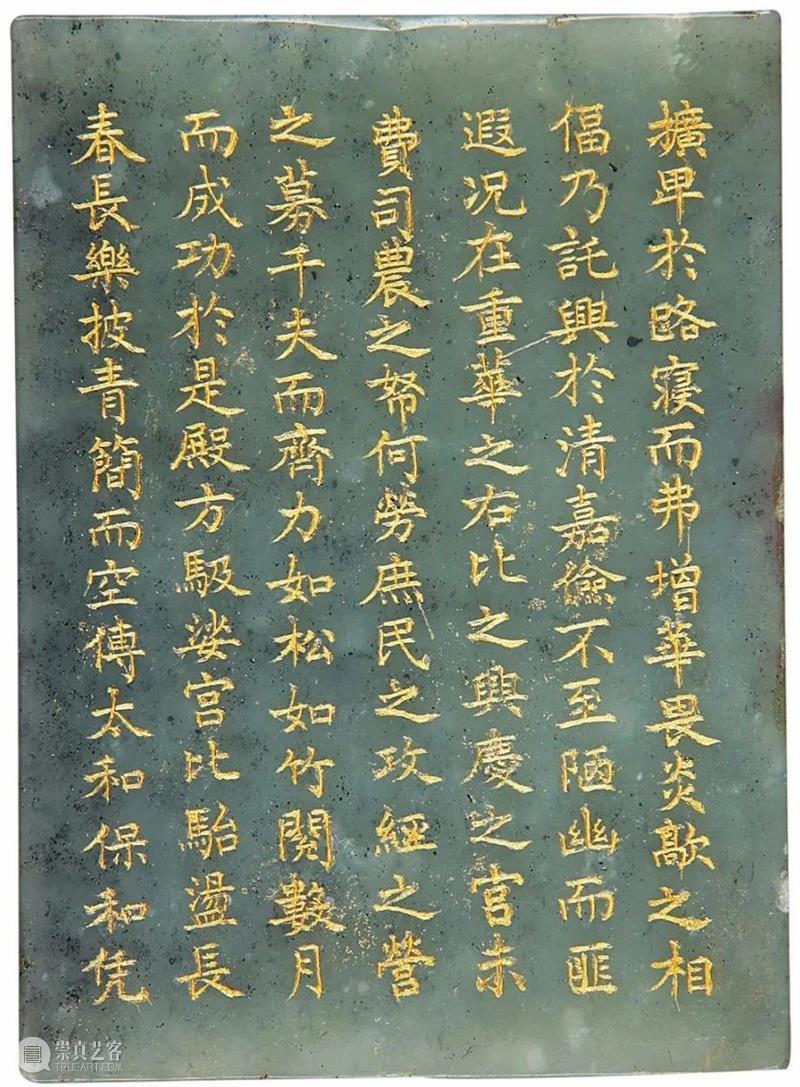 擴卑於路寢而弗增華畏炎歊之相
偪乃託興於清嘉儉不至陋幽而匪
遐况在重華之右比之興慶之宮未
費司農之帑何勞庶民之攻經之營
之募千夫而齊力如松如竹閱數月
而成功於是殿方馺娑宮比駘盪長
春長樂披青簡而空傳太和保和凭
崇真艺客
TRUEART.COM